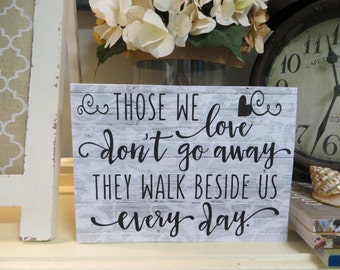 THOSE WE
love
don't go away
THEY WALK BESIDE US
every day.